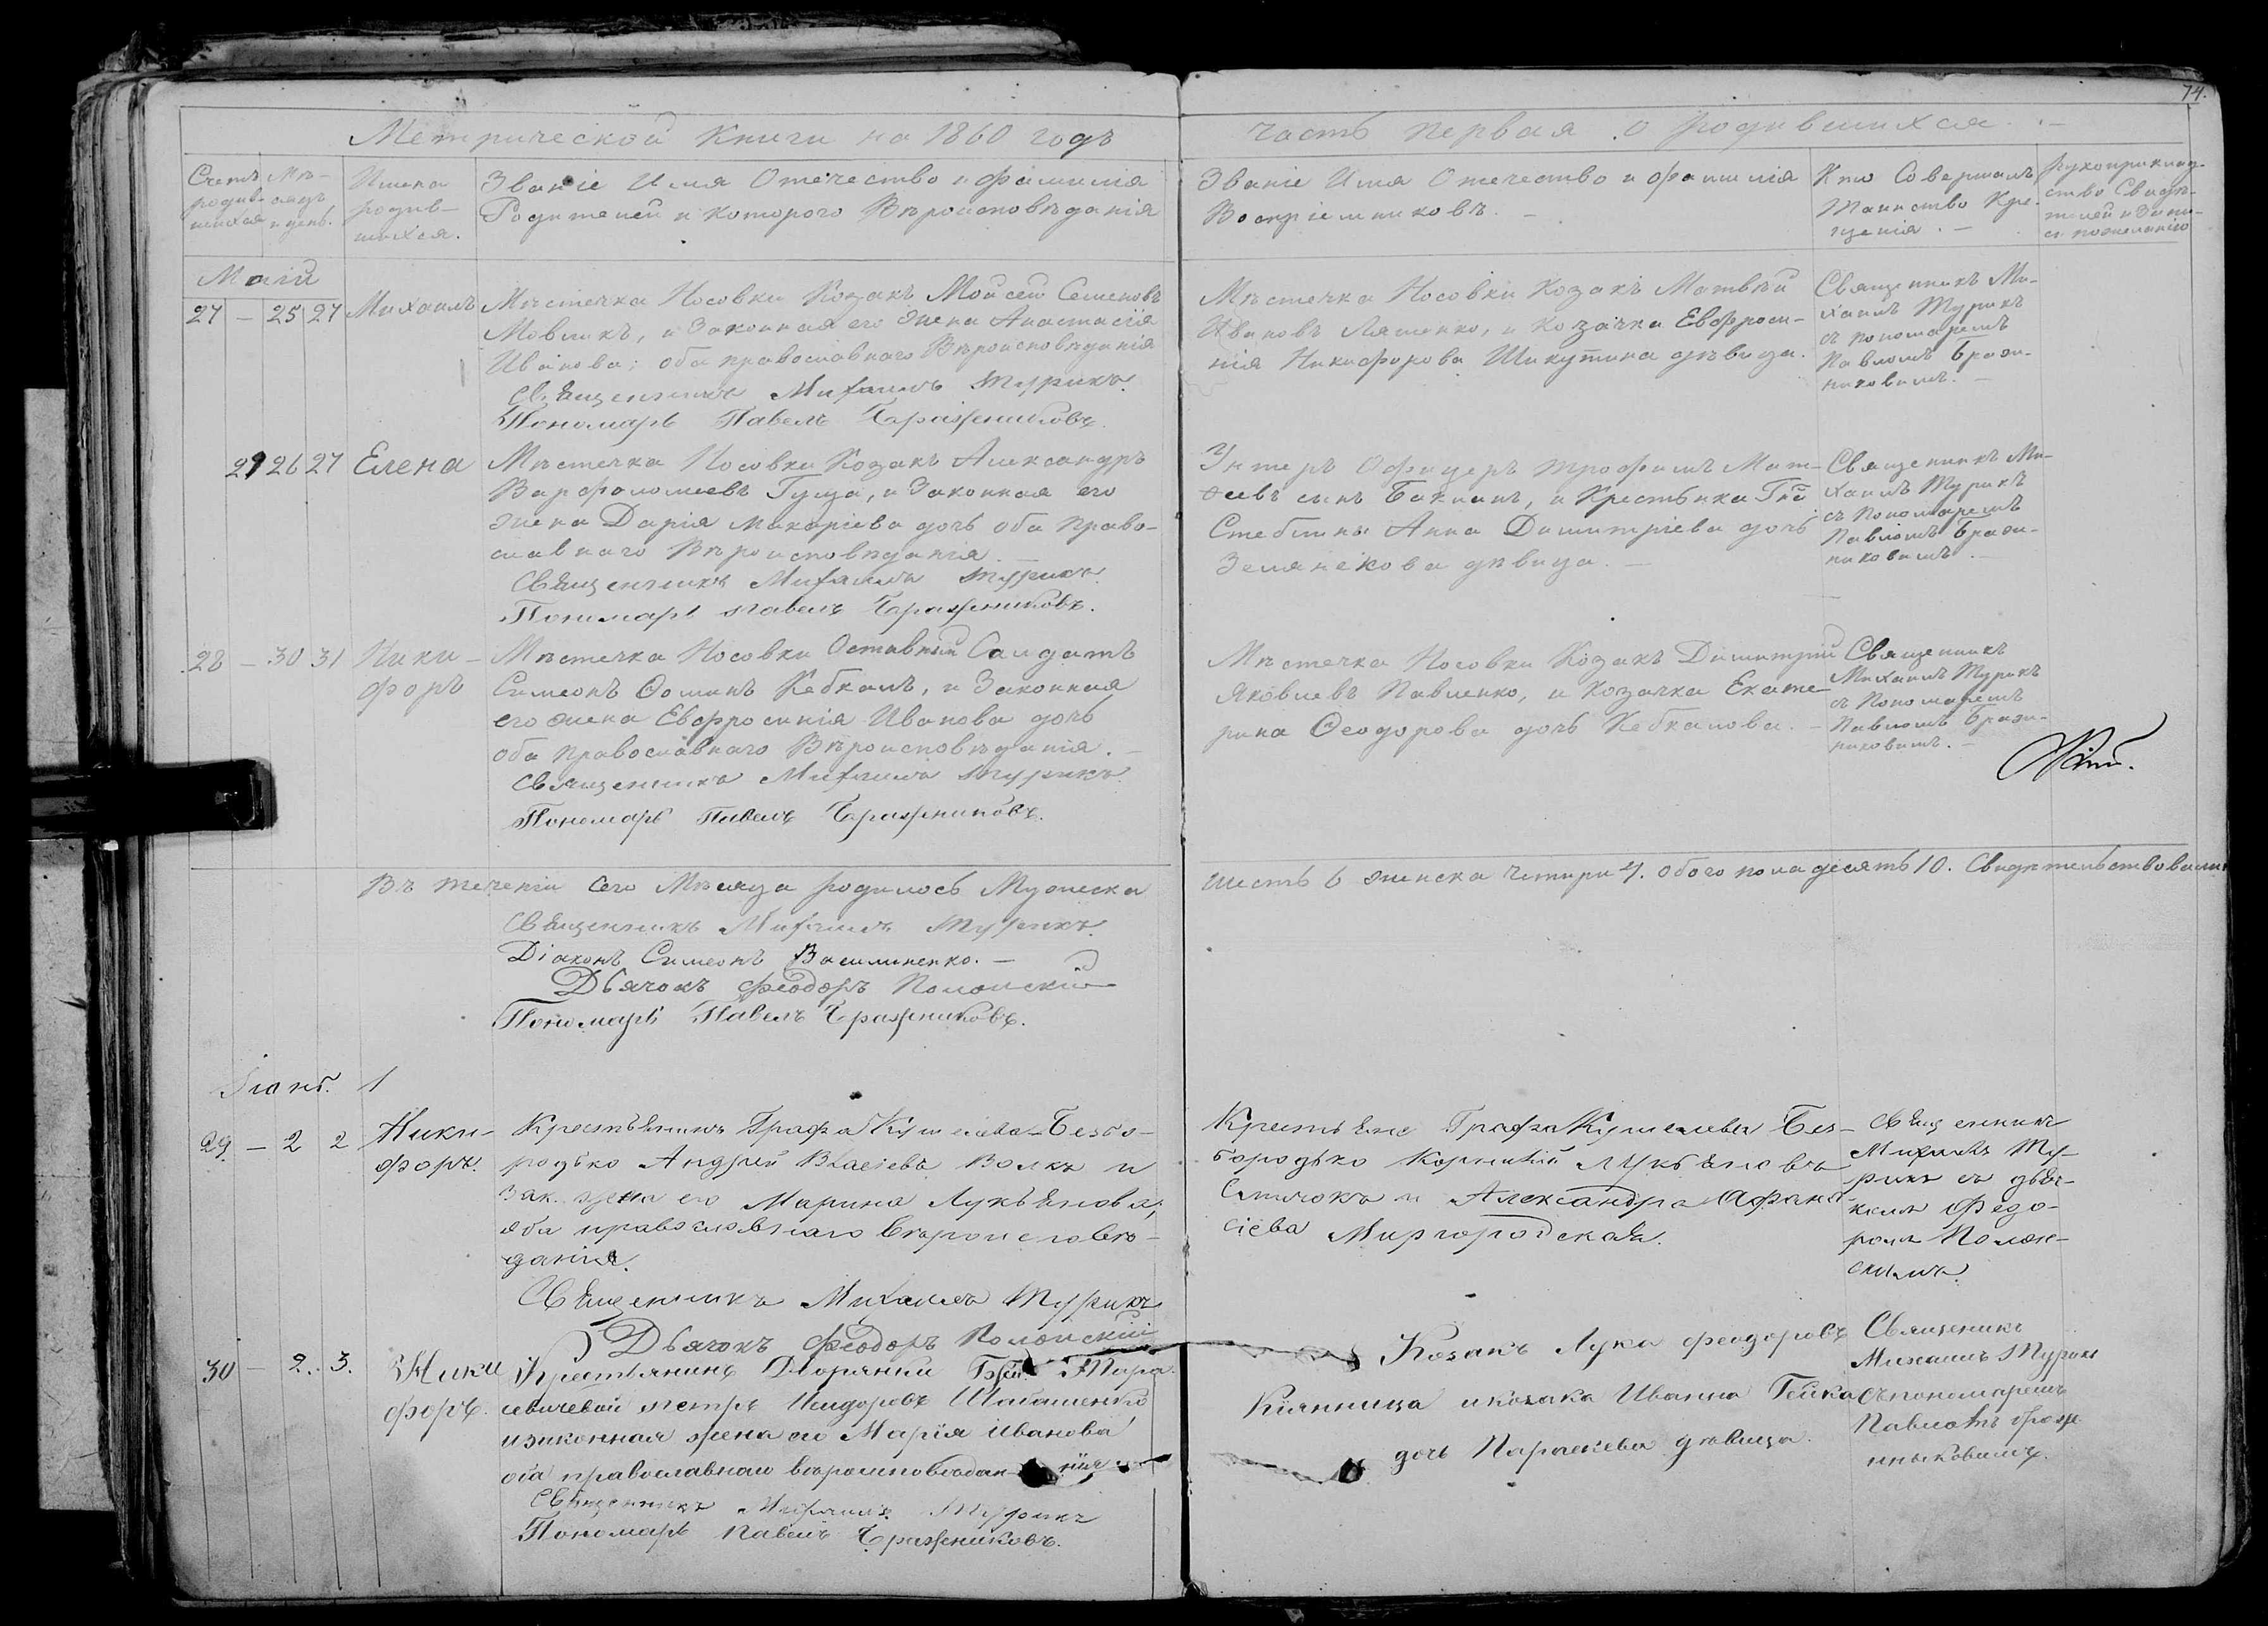 74.
Метрической Книги на 1860 годъ
часть первая о родившихся. —
Счетъ родив-шихся
Мѣ-сяцъ и день.
Имена
родив-
шихся.
Званіе Имя Отечество и фамилія
Родителей и которого Вѣроисповѣданія
Званіе Имя Отечество и фамилія
Воспріемниковъ. —
Кто Совершалъ
Таинство Кре-
щенія. —
Рукоприклад-
ство Свидѣ-
телей и Запи-
си по желанію
Маій
27 — 25 27 Михаилъ
Мѣстечка Носовки Козакъ Мойсей Семеновъ
Мовликъ, и Законная его жена Анастасія
Иванова; оба православнаго Вѣроисповѣданія
Священникъ Михаилъ Турикъ
Пономарь Павелъ Бражниковъ.
Мѣстечка Носовки Козакъ Матвѣй
Ивановъ Ляшенко, и Козачка Евфроси-
нія Никифорова Шикутина дѣвица.
Священникъ Ми-
хаилъ Турикъ
съ пономаремъ
Павломъ Браж-
никовымъ. —
29 26 27 Елена
Мѣстечка Носовки Козакъ Александръ
Варфоломеевъ Гуща, и Законная его
жена Дарія Макаріева дочь оба право-
славнаго Вѣроисповѣданія. —
Священникъ Михаилъ Турикъ
Пономарь Павелъ Бражниковъ.
Унтеръ Офицеръ Трофимъ Мат-
ѳеевъ сынъ Бакланъ, и Крестьянка Гжи
Стеблины Анна Димитріева дочь
дѣвица. —
Священникъ Ми-
хаилъ Турикъ
съ Пономаремъ
Павломъ Браж-
никовымъ. —
28 — 30 31 Ники-
форъ
Мѣстечка Носовки Оставный Салдатъ
Симеонъ Ѳоминъ Кебкалъ, и Законная
его жена Евфросинія Иванова дочь
оба православнаго Вѣроисповѣданія. —
Священникъ Михаилъ Турикъ
Пономарь Павелъ Бражниковъ.
Мѣстечка Носовки Козакъ Димитрій
Яковлевъ Павленко, и Козачка Екате-
рина Ѳеодорова дочь Кебкалова. —
Священникъ
Михаилъ Турикъ
съ Пономаремъ
Павломъ Браж-
никовымъ. —
Въ теченіи Сего Мѣсяца родилось Мужеска
шесть 6 женска Четыри 4. обого пола десять 10. Свидѣтельствовали
Священникъ Михаилъ Турикъ
Діаконъ Симеонъ Василиненко. —
Дьячокъ Феодоръ Полонскій
Пономарь Павелъ Бражниковъ.
29 — 2 2 Ники-
форъ.
Крестьянинъ Графа Кушелева-Безбо-
родько Андрей Власіевъ Волкъ и
зак. жена его Марина Лукьянова;
оба православнаго вѣроисповѣ-
данія.
Священникъ Михаилъ Турикъ
Дьячокъ Феодоръ Полонскій
Крестьяне Графа Кушелева Без-
бородько Корнилій Лукьяновъ
и Александра Афана-
сіева Миргородская.
Священникъ
Михаилъ Ту-
рикъ съ дьяч-
комъ Федо-
ромъ Полон-
скимъ
30 — 2. 3. Ники
форъ.
Крестьянинъ Дворянки
Петръ Исидоровъ Шабашенко
и законная жена его Марія Иванова
оба православнаго вѣроисповѣданнія
Священникъ Михаилъ Турикъ
Пономарь Павелъ Бражниковъ.
Козакъ Лука Феодоровъ
Кіянница и козака Ивана Гейка
дочь Параскева дѣвица.
Священикъ
Михаилъ Турикъ
съ пономаремъ
Павломъ Браж
никовымъ.